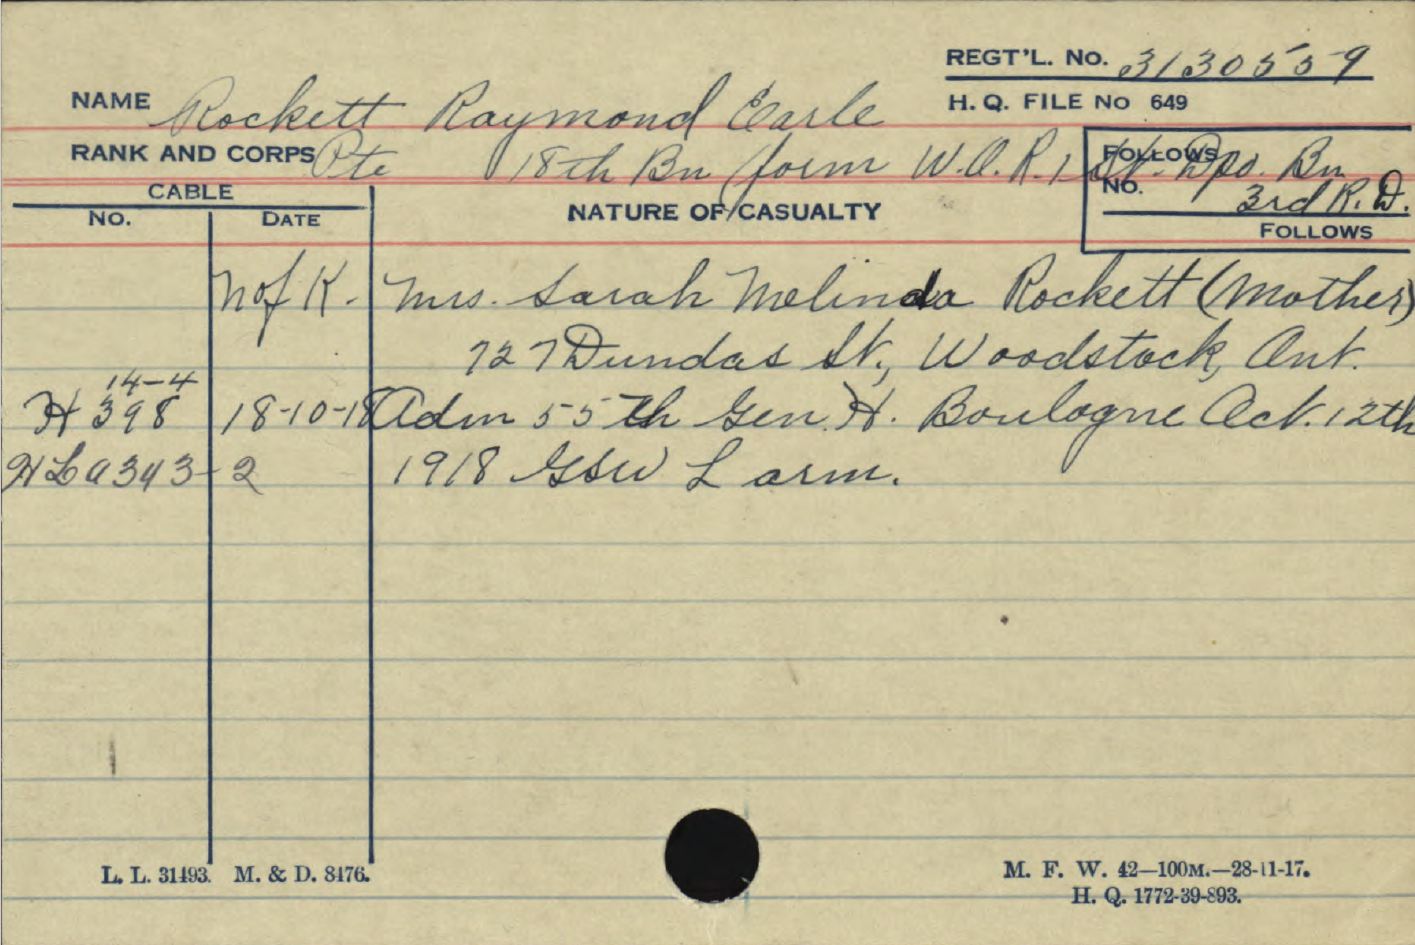 REGT'L. No. 3130559
NAME Rockett Raymond Earle
H. Q. FILE No 649
RANK AND CORPS Pte 18th Bn (form W.O.R. 1st. Dpo. Bn
FOLLOWS
No. 3rd R. D.
CABLE
No. DATE NATURE OF CASUALTY
FOLLOWS
N of K. Mrs. Sarah Melinda Rockett (Mother)
727 Dundas St., Woodstock, Ont.
14-4
H 398 18-10-18 Adm 55th Gen. H. Boulogne Oct. 12th
HL a343-2 1918 GSW L arm.
L. L. 31493. M. & D. 8476.
M. F. W. 42—100M.—28-11-17.
H. Q. 1772-39-893.